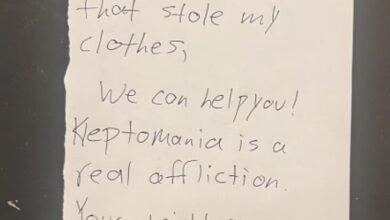 that stole my
clothes,
We can help you!
Kleptomania is a
real affliction.